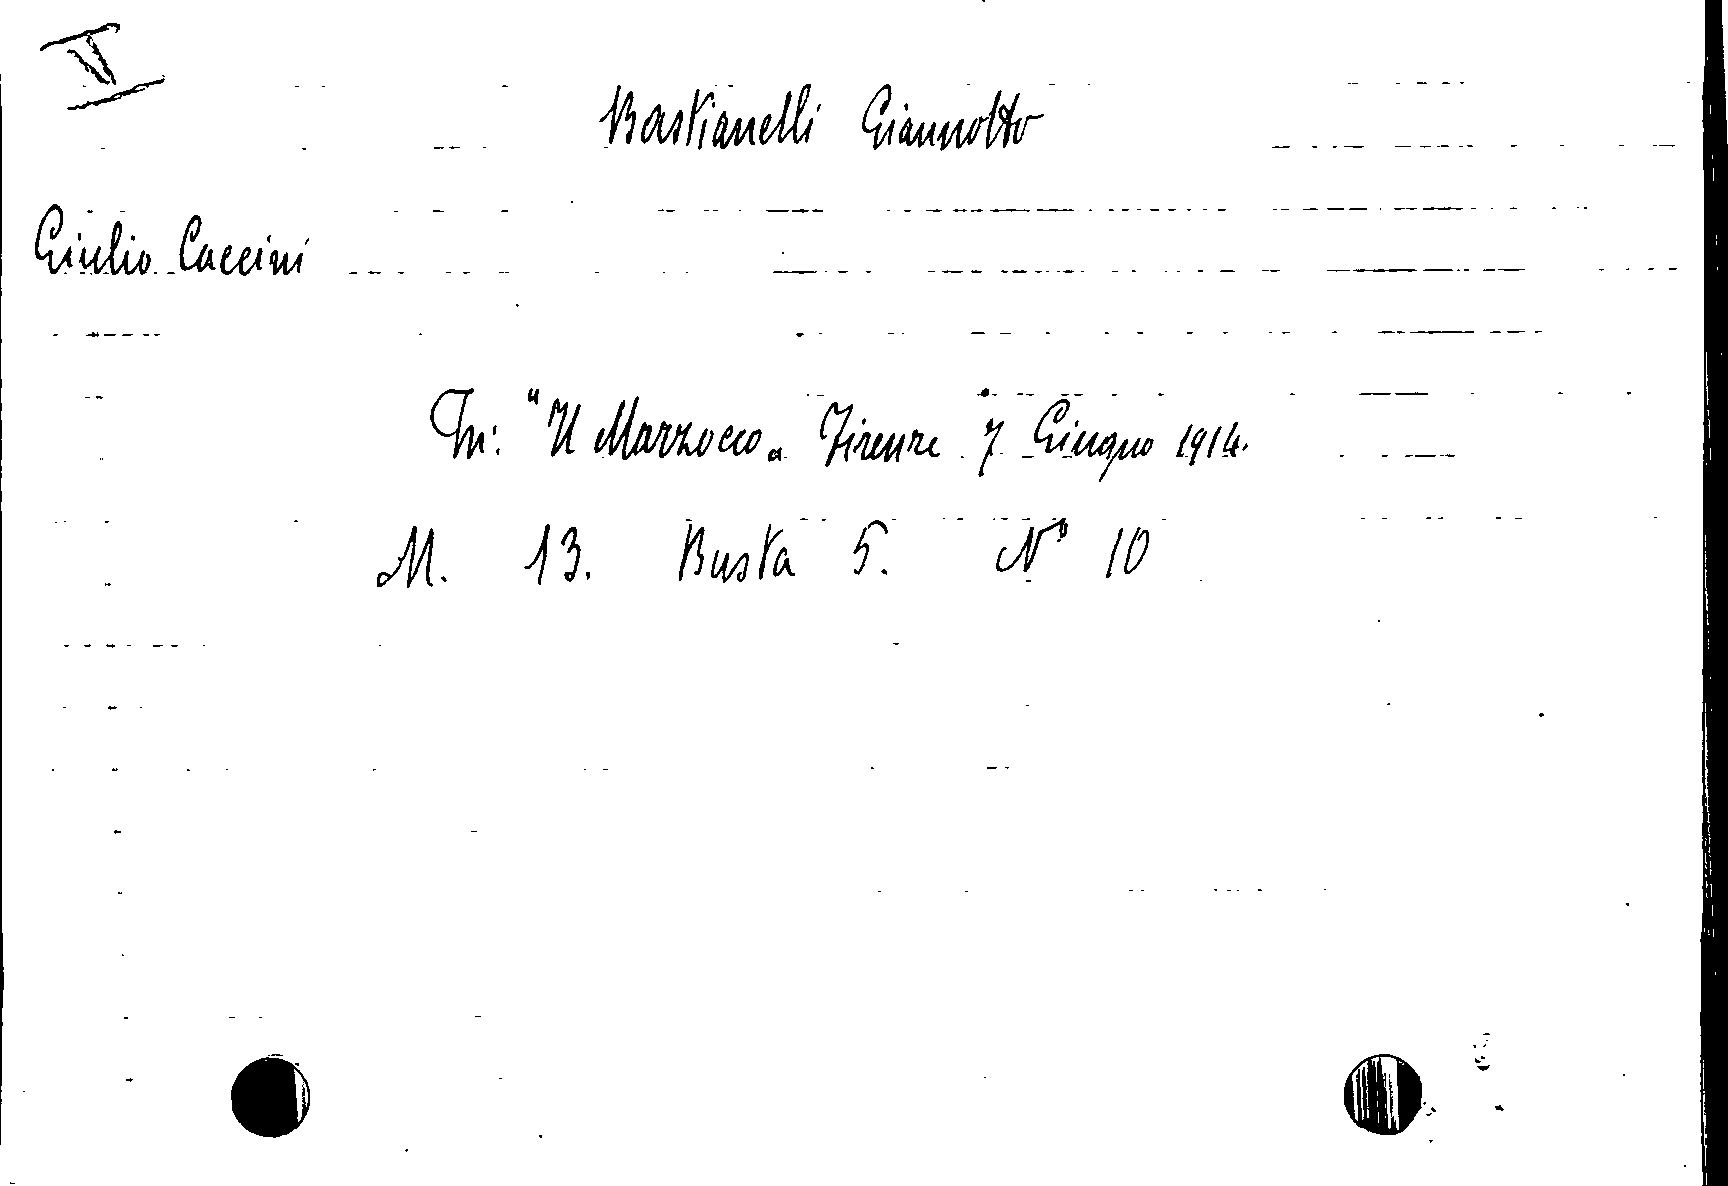 V
Bastianelli Giannotto
Giulio Caccini
In: "Il Marzocco„ Firenze 7 Giugno 1914.
M. 13. Busta 5. N° 10